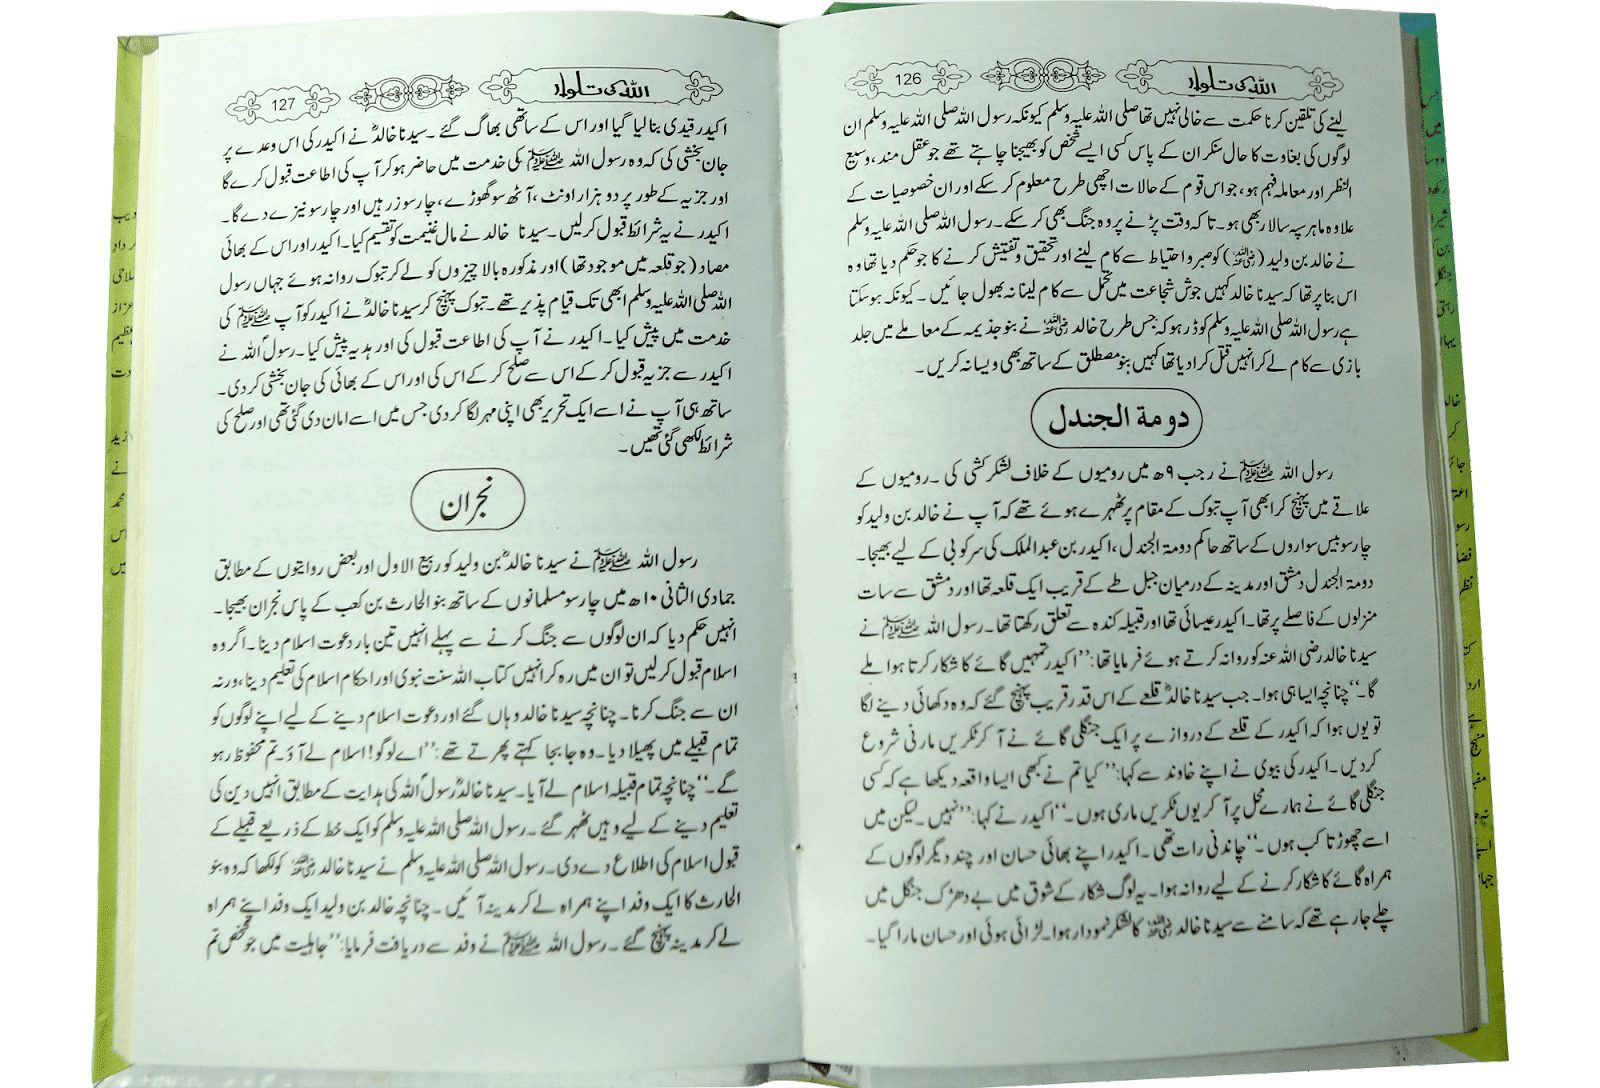 اللہ کی تلوار
126
لینے کی تلقین کرنا حکمت سے خالی نہیں تھا صلی اللہ علیہ وسلم کیونکہ رسول اللہ صلی اللہ علیہ وسلم ان
لوگوں کی بغاوت کا حال سنکر ان کے پاس کسی ایسے شخص کو بھیجنا چاہتے تھے جو عقل مند، وسیع
النظر اور معاملہ فہم ہو، جو اس قوم کے حالات اچھی طرح معلوم کر سکے اور ان خصوصیات کے
علاوہ ماہر سپہ سالار بھی ہو۔ تا کہ وقت پڑنے پر وہ جنگ بھی کر سکے۔ رسول اللہ صلی اللہ علیہ وسلم
نے خالد بن ولید (رضی اللہ عنہ) کو صبر و احتیاط سے کام لینے اور تحقیق و تفتیش کرنے کا جو حکم دیا تھا وہ
اس بنا پر تھا کہ سیدنا خالد کہیں جوش شجاعت میں تحمل سے کام لینا نہ بھول جائیں۔ کیونکہ ہو سکتا
ہے رسول اللہ صلی اللہ علیہ وسلم کو ڈر ہو کہ جس طرح خالد رضی اللہ عنہ نے بنو جذیمہ کے معاملے میں جلد
بازی سے کام لے کر انہیں قتل کرا دیا تھا کہیں بنو مصطلق کے ساتھ بھی ویسا نہ کریں۔
دومة الجندل
رسول اللہ ﷺ نے رجب ۹ھ میں رومیوں کے خلاف لشکر کشی کی۔ رومیوں کے
علاقے میں پہنچ کر ابھی آپ تبوک کے مقام پر ٹھہرے ہوئے تھے کہ آپ نے خالد بن ولید کو
چار سو بیس سواروں کے ساتھ حاکم دومۃ الجندل، اکیدر بن عبدالملک کی سرکوبی کے لیے بھیجا۔
دومۃ الجندل دمشق اور مدینہ کے درمیان جبل طے کے قریب ایک قلعہ تھا اور دمشق سے سات
منزلوں کے فاصلے پر تھا۔ اکیدر عیسائی تھا اور قبیلہ کندہ سے تعلق رکھتا تھا۔ رسول اللہ ﷺ نے
سیدنا خالد رضی اللہ عنہ کو روانہ کرتے ہوئے فرمایا تھا: ’’اکیدر تمہیں گائے کا شکار کرتا ہوا ملے
گا۔‘‘ چنانچہ ایسا ہی ہوا۔ جب سیدنا خالدؓ قلعے کے اس قدر قریب پہنچ گئے کہ وہ دکھائی دینے لگا
تو یوں ہوا کہ اکیدر کے قلعے کے دروازے پر ایک جنگلی گائے نے آ کر ٹکریں مارنی شروع
کردیں۔ اکیدر کی بیوی نے اپنے خاوند سے کہا: ’’کیا تم نے کبھی ایسا واقعہ دیکھا ہے کہ کسی
جنگلی گائے نے ہمارے محل پر آ کر یوں ٹکریں ماری ہوں۔‘‘ اکیدر نے کہا: ’’نہیں۔ لیکن میں
اسے چھوڑتا کب ہوں۔‘‘ چاندنی رات تھی۔ اکیدر اپنے بھائی حسان اور چند دیگر لوگوں کے
ہمراہ گائے کا شکار کرنے کے لیے روانہ ہوا۔ یہ لوگ شکار کے شوق میں بے دھڑک جنگل میں
چلے جا رہے تھے کہ سامنے سے سیدنا خالد رضی اللہ عنہ کا لشکر نمودار ہوا۔ لڑائی ہوئی اور حسان مارا گیا۔
اللہ کی تلوار
127
اکیدر قیدی بنا لیا گیا اور اس کے ساتھی بھاگ گئے۔ سیدنا خالدؓ نے اکیدر کی اس وعدے پر
جان بخشی کی کہ وہ رسول اللہ ﷺ کی خدمت میں حاضر ہو کر آپ کی اطاعت قبول کرے گا
اور جزیہ کے طور پر دو ہزار اونٹ، آٹھ سو گھوڑے، چار سو زرہیں اور چار سو نیزے دے گا۔
اکیدر نے یہ شرائط قبول کر لیں۔ سیدنا خالد نے مال غنیمت کو تقسیم کیا۔ اکیدر اور اس کے بھائی
مصاد (جو قلعہ میں موجود تھا) اور مذکورہ بالا چیزوں کو لے کر تبوک روانہ ہوئے جہاں رسول
اللہ صلی اللہ علیہ وسلم ابھی تک قیام پذیر تھے۔ تبوک پہنچ کر سیدنا خالدؓ نے اکیدر کو آپ ﷺ کی
خدمت میں پیش کیا۔ اکیدر نے آپ کی اطاعت قبول کی اور ہدیہ پیش کیا۔ رسول اللہ نے
اکیدر سے جزیہ قبول کر کے اس سے صلح کر کے اس کی اور اس کے بھائی کی جان بخشی کر دی۔
ساتھ ہی آپ نے اسے ایک تحریر بھی اپنی مہر لگا کر دی جس میں اسے امان دی گئی تھی اور صلح کی
شرائط لکھی گئی تھیں۔
نجران
رسول اللہ ﷺ نے سیدنا خالدؓ بن ولید کو ربیع الاول اور بعض روایتوں کے مطابق
جمادی الثانی ۱۰ھ میں چار سو مسلمانوں کے ساتھ بنو الحارث بن کعب کے پاس نجران بھیجا۔
انہیں حکم دیا کہ ان لوگوں سے جنگ کرنے سے پہلے انہیں تین بار دعوت اسلام دینا۔ اگر وہ
اسلام قبول کر لیں تو ان میں رہ کر انہیں کتاب اللہ سنت نبوی اور احکام اسلام کی تعلیم دینا، ورنہ
ان سے جنگ کرنا۔ چنانچہ سیدنا خالد وہاں گئے اور دعوت اسلام دینے کے لیے اپنے لوگوں کو
تمام قبیلے میں پھیلا دیا۔ وہ جابجا کہتے پھرتے تھے: ’’اے لوگو! اسلام لے آؤ۔ تم محفوظ رہو
گے۔‘‘ چنانچہ تمام قبیلہ اسلام لے آیا۔ سیدنا خالدؓ رسول اللہ کی ہدایت کے مطابق انہیں دین کی
تعلیم دینے کے لیے وہیں ٹھہر گئے۔ رسول اللہ صلی اللہ علیہ وسلم کو ایک خط کے ذریعے قبیلے کے
قبول اسلام کی اطلاع دے دی۔ رسول اللہ صلی اللہ علیہ وسلم نے سیدنا خالد رضی اللہ عنہ کو لکھا کہ وہ بنو
الحارث کا ایک وفد اپنے ہمراہ لے کر مدینہ آئیں۔ چنانچہ خالد بن ولید ایک وفد اپنے ہمراہ
لے کر مدینہ پہنچ گئے۔ رسول اللہ ﷺ نے وفد سے دریافت فرمایا: ’’جاہلیت میں جو شخص تم